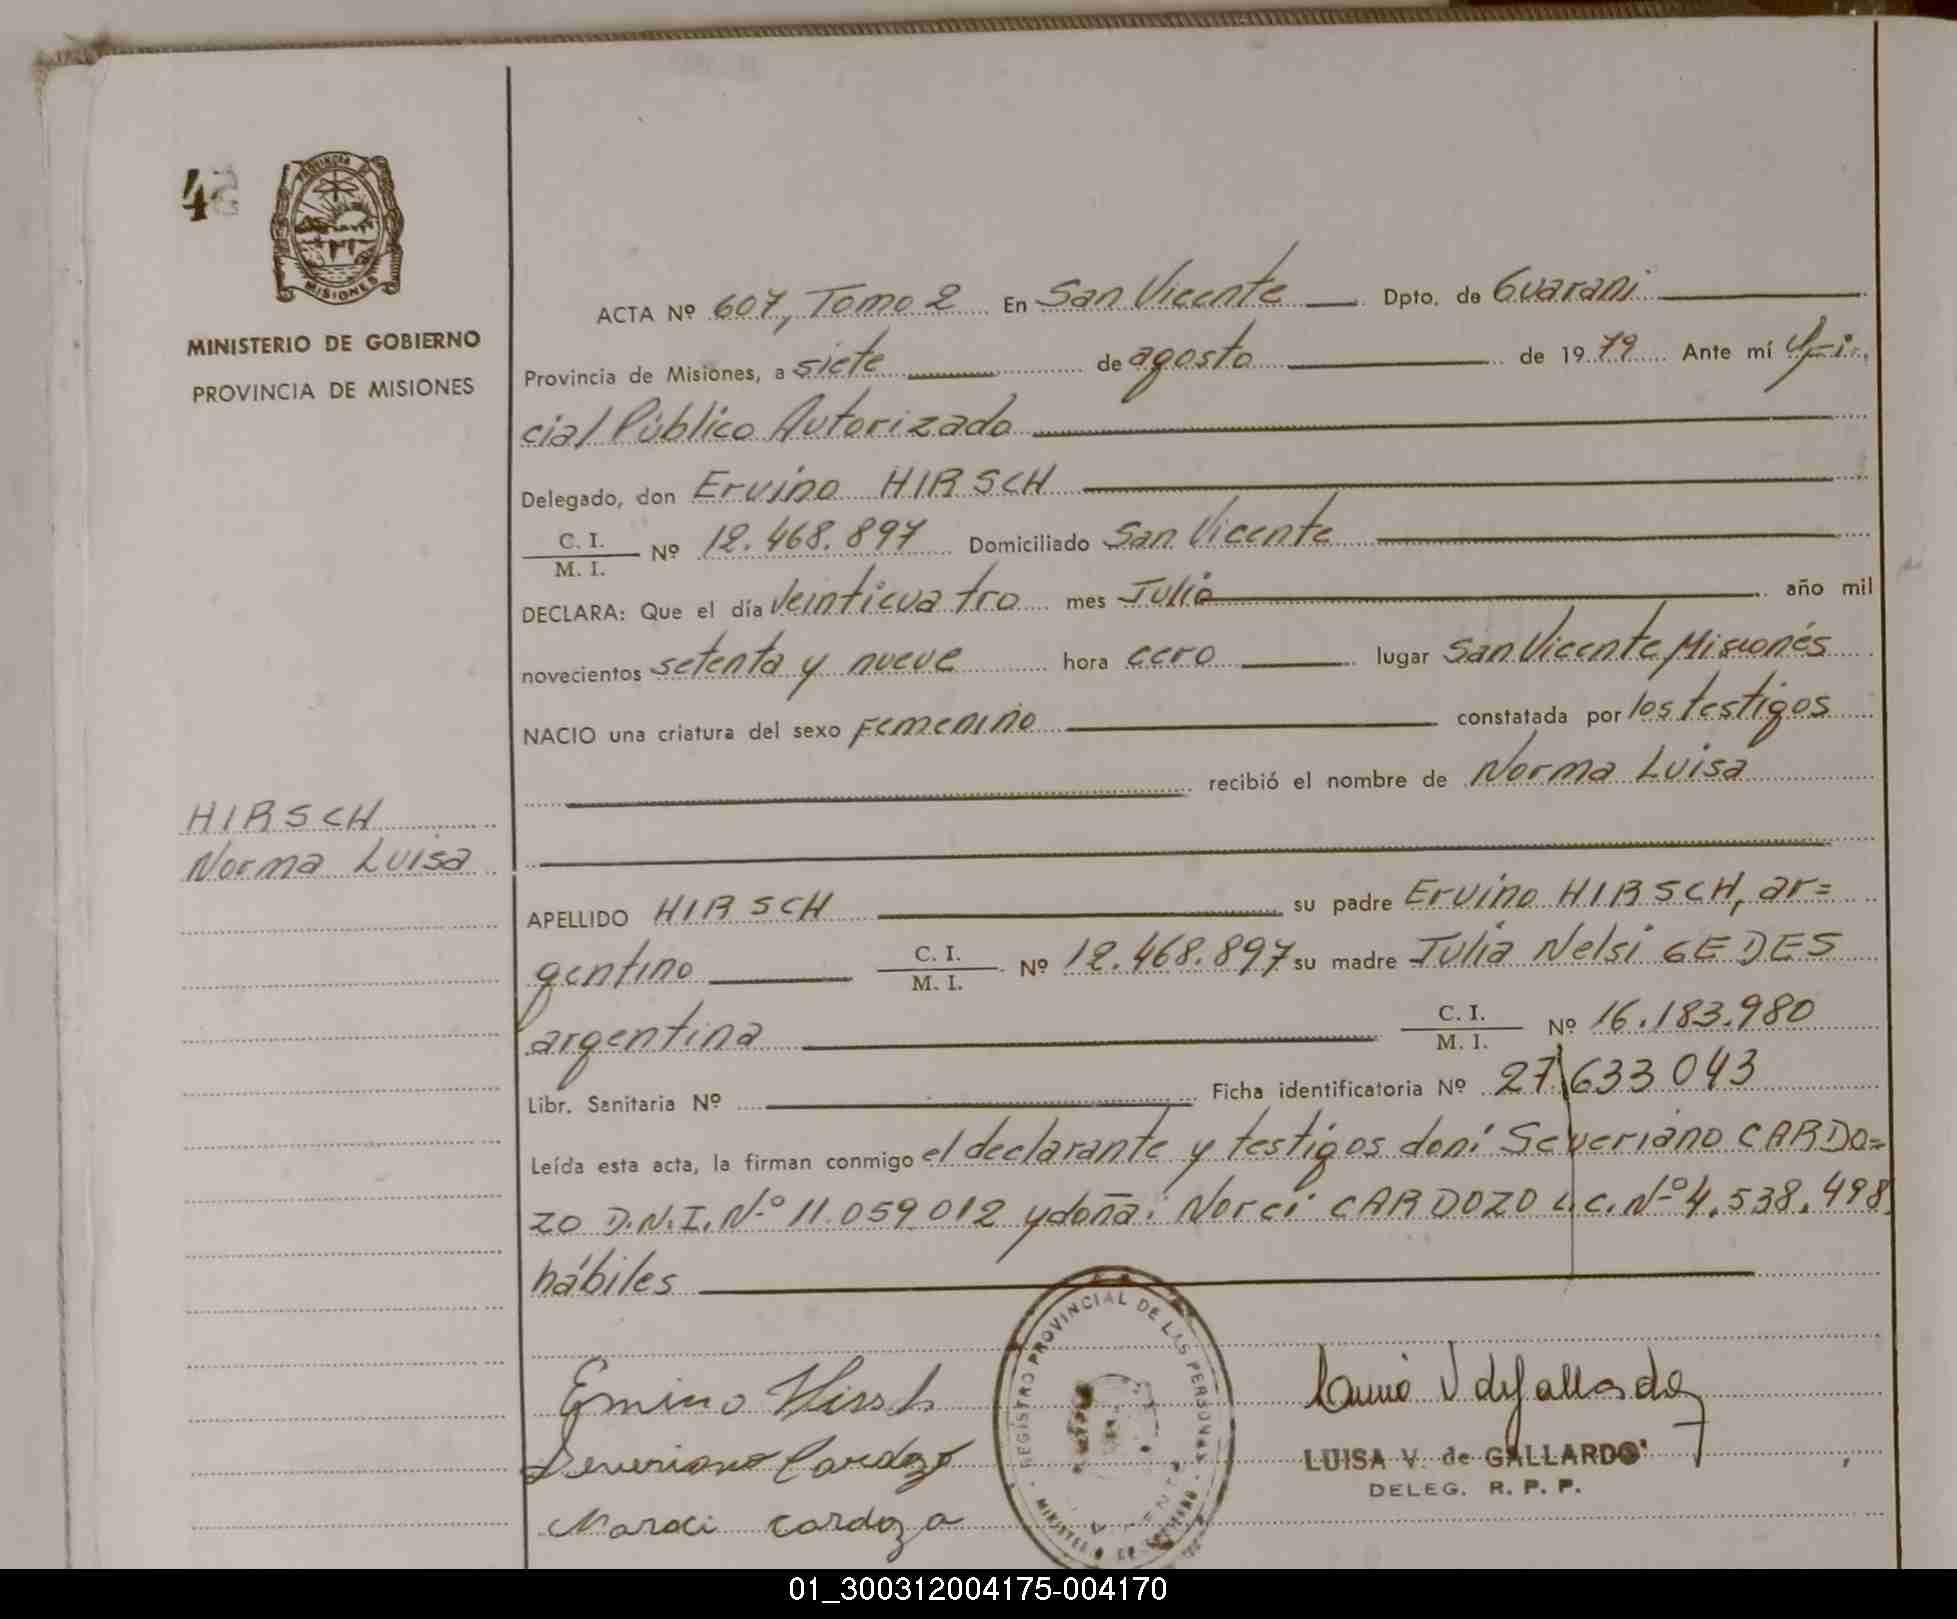 45
PROVINCIA DE
MISIONES
MINISTERIO DE GOBIERNO
PROVINCIA DE MISIONES
HIRSCH
Norma Luisa
ACTA Nº 607, Tomo 2 En San Vicente Dpto. de Guaraní
Provincia de Misiones, a siete de agosto de 1979 Ante mí Ofi-
cial Público Autorizado
Delegado, don Ervino HIRSCH
C. I.
M. I. Nº 12.468.897 Domiciliado San Vicente
DECLARA: Que el día veinticuatro mes Julio año mil
novecientos setenta y nueve hora cero lugar San Vicente Misiones
NACIO una criatura del sexo Femenino constatada por los testigos
recibió el nombre de Norma Luisa
APELLIDO HIRSCH su padre Ervino HIRSCH, ar=
gentino C. I.
M. I. Nº 12.468.897 su madre Julia Nelsi GEDES
argentina C. I.
M. I. Nº 16.183.980
Libr. Sanitaria Nº Ficha identificatoria Nº 27.633043
Leída esta acta, la firman conmigo el declarante y testigos don: Severiano CARDO=
ZO D.N.I. Nº 11.059.012 y doña: Norci CARDOZO L.C. Nº 4.538.498
hábiles
REGISTRO PROVINCIAL DE LAS PERSONAS
MINISTERIO DE GOBIERNO
Severiano Cardozo
LUISA V. de GALLARDO
DELEG. R. P. P.
01_300312004175-004170